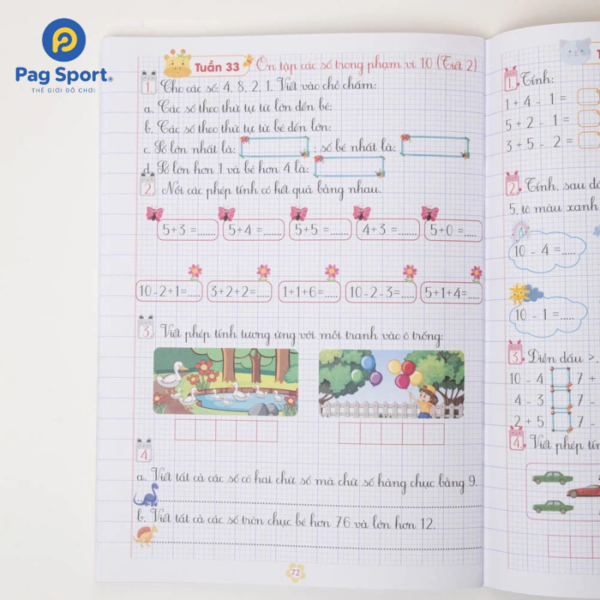 Pag Sport.
THẾ GIỚI ĐỒ CHƠI
Tuần 33
Ôn tập các số trong phạm vi 10 (Tiết 2)
1. Cho các số: 4, 8, 2, 1. Viết vào chỗ chấm:
a. Các số theo thứ tự từ lớn đến bé:
b. Các số theo thứ tự từ bé đến lớn:
c. Số lớn nhất là: ; số bé nhất là:
d. Số lớn hơn 1 và bé hơn 4 là:
2. Nối các phép tính có kết quả bằng nhau.
5+3 =...... 5+4 =...... 5+5 =...... 4+3 =...... 5+0 =......
10-2+1=..... 3+2+2=..... 1+1+6=..... 10-2-3=..... 5+1+4=.....
3. Viết phép tính tương ứng với mỗi tranh vào ô trống:
4
a. Viết tất cả các số có hai chữ số mà chữ số hàng chục bằng 9.
b. Viết tất cả các số tròn chục bé hơn 76 và lớn hơn 12.
72
1. Tính:
1 + 4 - 1 =
5 + 2 - 1 =
3 + 5 - 2 =
2. Tính, sau đó
5, tô màu xanh
10 - 4 =.....
10 - 1 =.....
3. Điền dấu >,
10 - 4 7 +
4 - 3 7 -
2 + 5 7 -
4. Viết phép tín